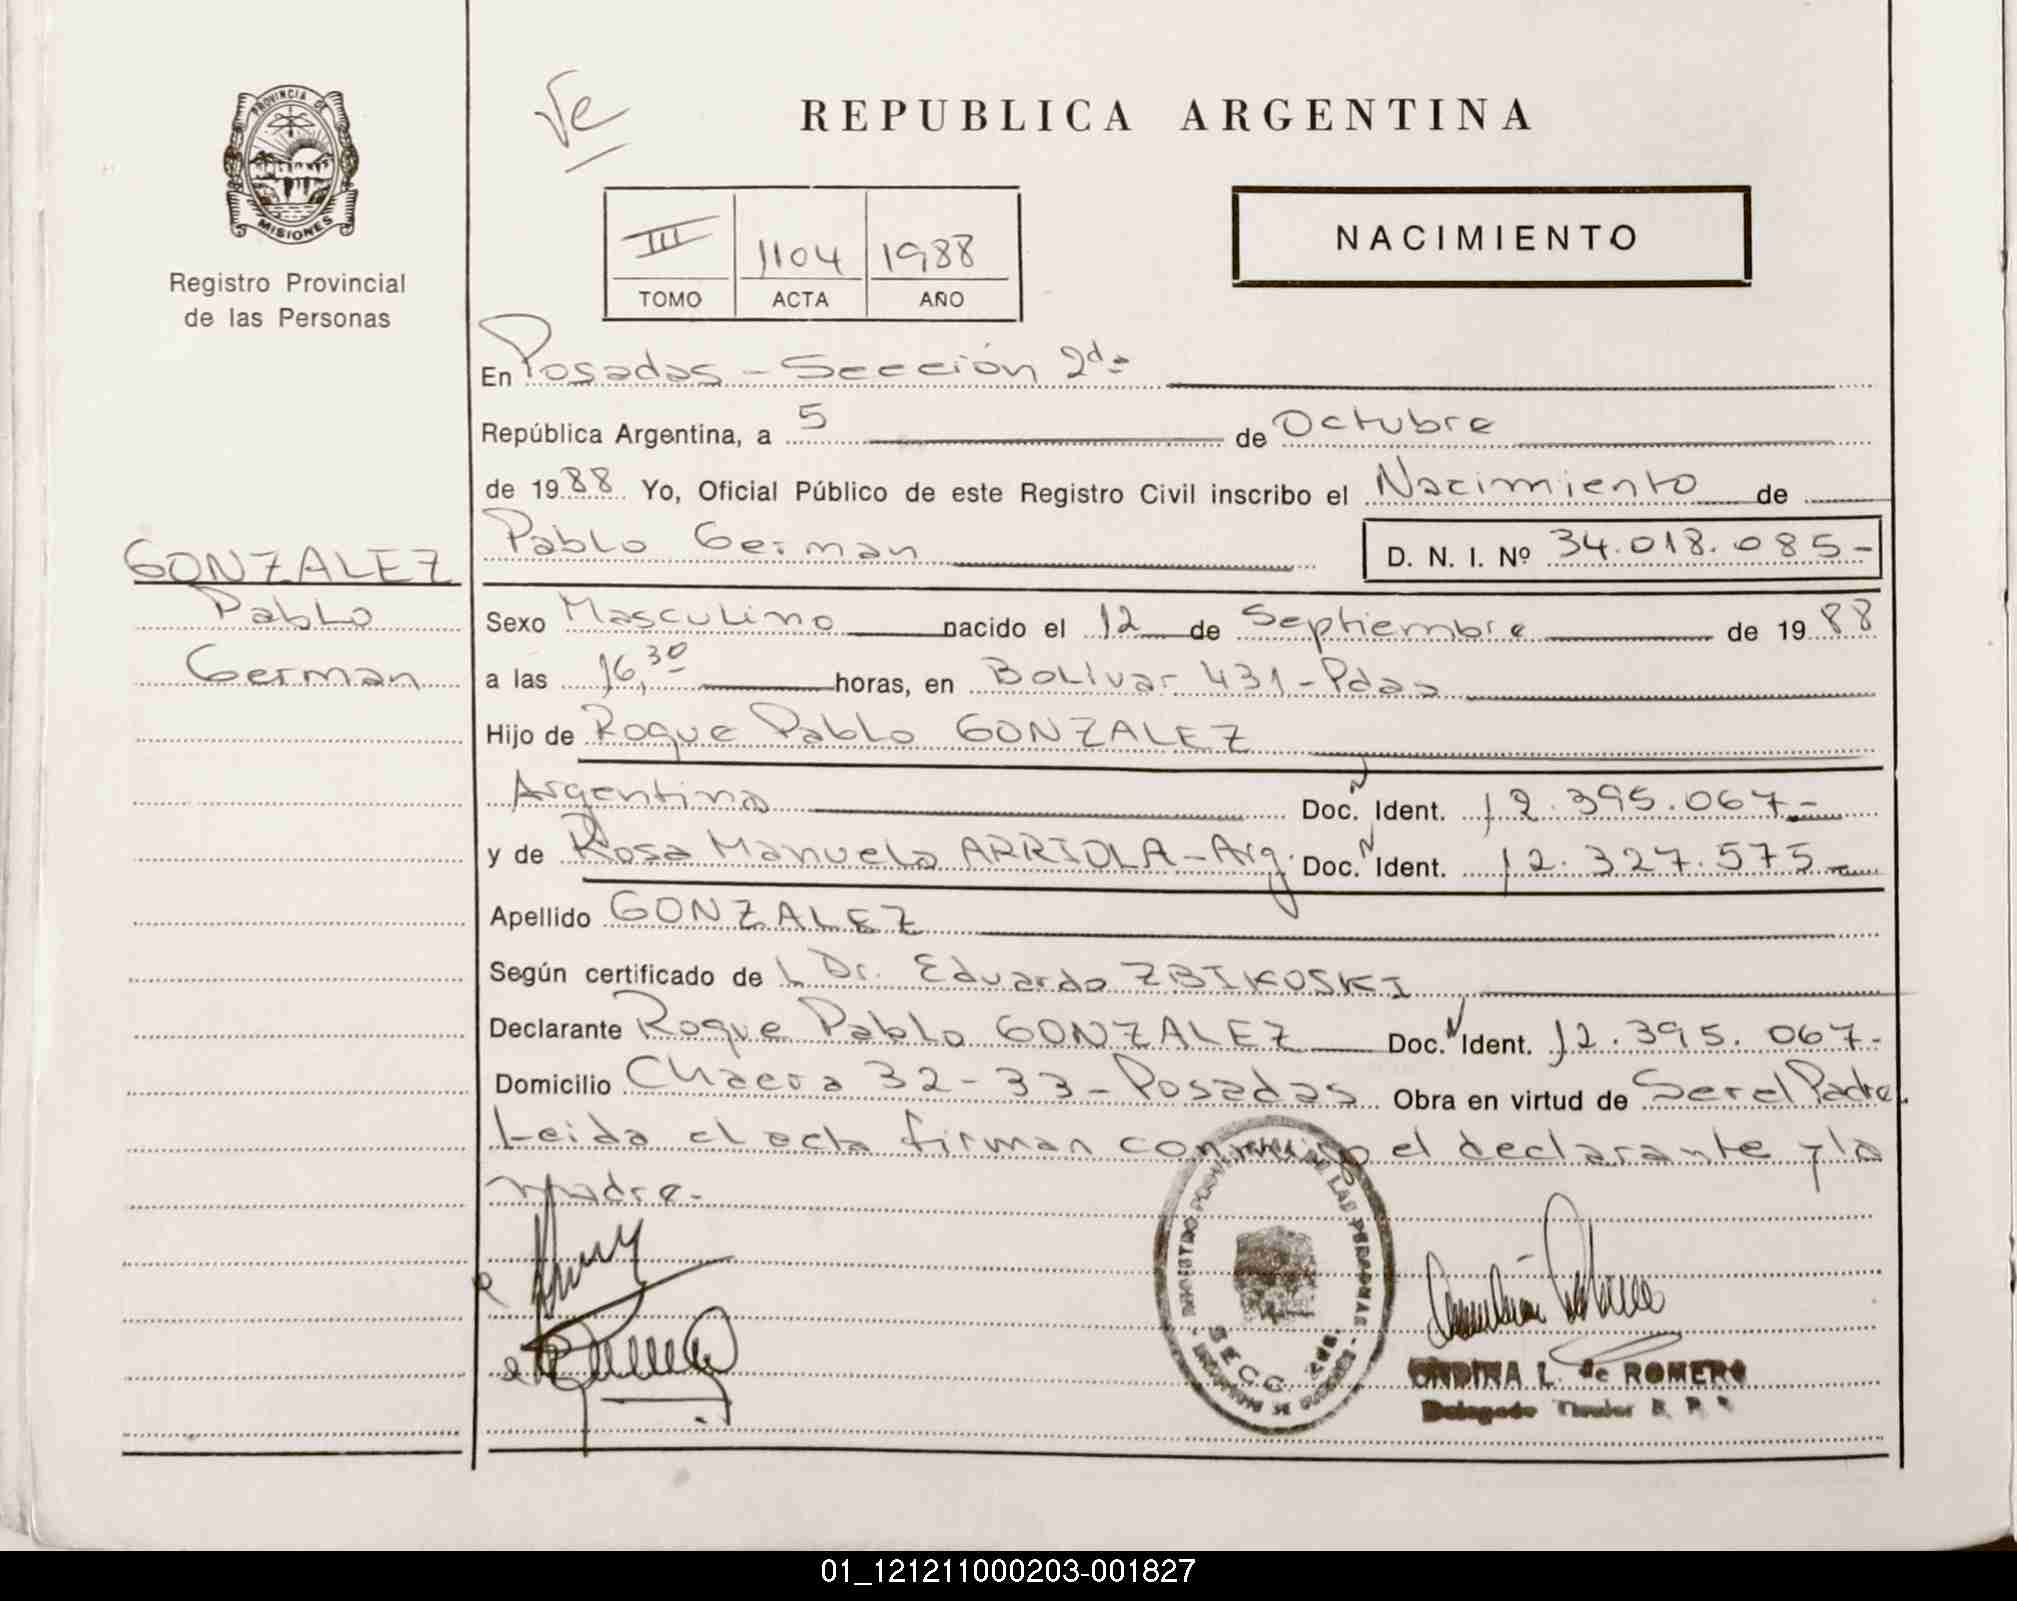 Ve
REPUBLICA ARGENTINA
PROVINCIA DE
MISIONES
Registro Provincial
de las Personas
III 1104 1988
TOMO ACTA AÑO
NACIMIENTO
En Posadas - Sección 2da
República Argentina, a 5 de Octubre
de 1988 Yo, Oficial Público de este Registro Civil inscribo el Nacimiento de
Pablo German D. N. I. Nº 34.018.085-
GONZALEZ
Pablo
German
Sexo Masculino nacido el 12 de Septiembre de 1988
a las 16,30 horas, en Bolívar 431 - Pdas
Hijo de Roque Pablo GONZALEZ
Argentino Doc. N Ident. 12.395.067-
y de Rosa Manuela ARRIOLA - Arg. Doc. N Ident. 12.327.575-
Apellido GONZALEZ
Según certificado de L Dr. Eduardo ZBIKOSKI
Declarante Roque Pablo GONZALEZ Doc. N Ident. 12.395.067-
Domicilio Chacra 32-33 - Posadas Obra en virtud de Ser el Padre.
Leida el acta firman conmigo el declarante y la
madre.-
SECC. 2da
ONDINA L. de ROMERO
Delegado Titular R. P. P.
01_121211000203-001827